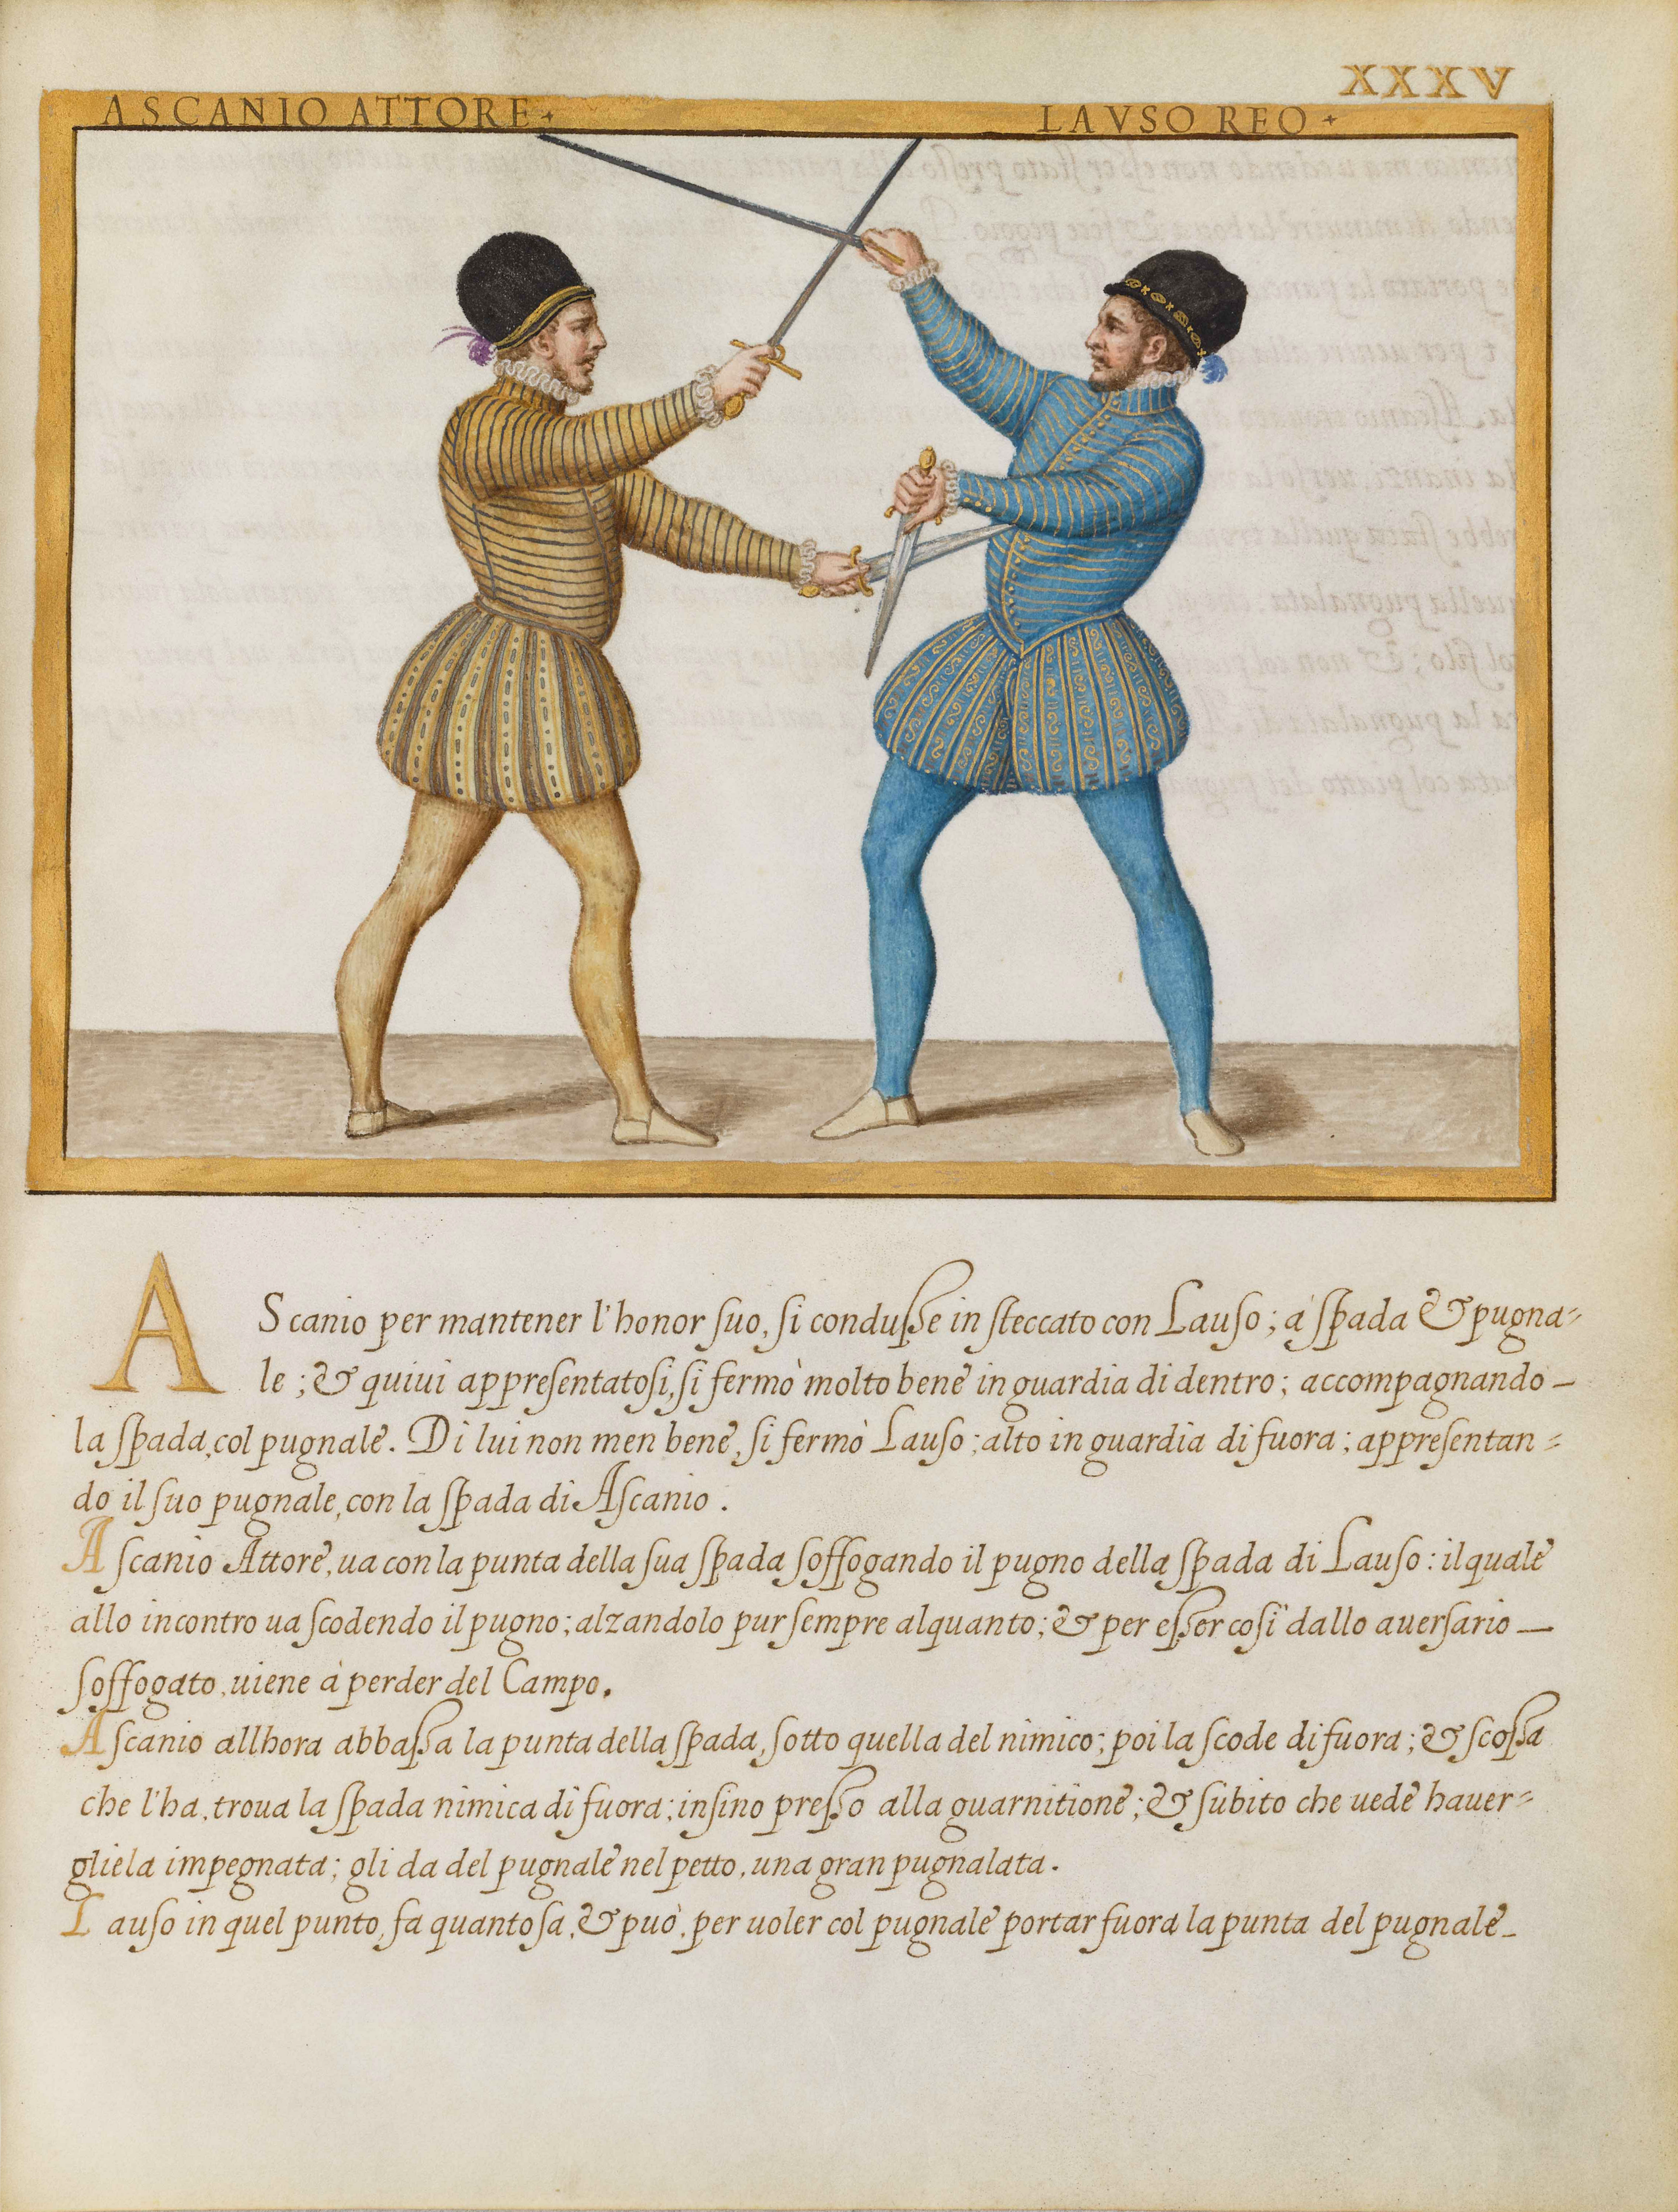 XXXV
ASCANIO ATTORE
LAVSO REO
AScanio per mantener l'honor suo, si condusse in steccato con Lauso; à spada & pugna=
le; & quiui appresentatosi, si fermò molto bene in guardia di dentro; accompagnando
la spada, col pugnale. Di lui non men bene, si fermò Lauso; alto in guardia di fuora; appresentan=
do il suo pugnale, con la spada di Ascanio.
Ascanio Attore, ua con la punta della sua spada soffogando il pugno della spada di Lauso: il quale
allo incontro ua scodendo il pugno; alzandolo pur sempre alquanto; & per esser così dallo auersario
soffogato, uiene à perder del Campo.
Ascanio allhora abbassa la punta della spada, sotto quella del nimico; poi la scode di fuora; & scossa
che l'ha, troua la spada nimica di fuora; insino presso alla guarnitione; & subito che uede hauer=
gliela impegnata; gli da del pugnale nel petto, una gran pugnalata.
Lauso in quel punto, fa quanto sa, & può, per uoler col pugnale portar fuora la punta del pugnale